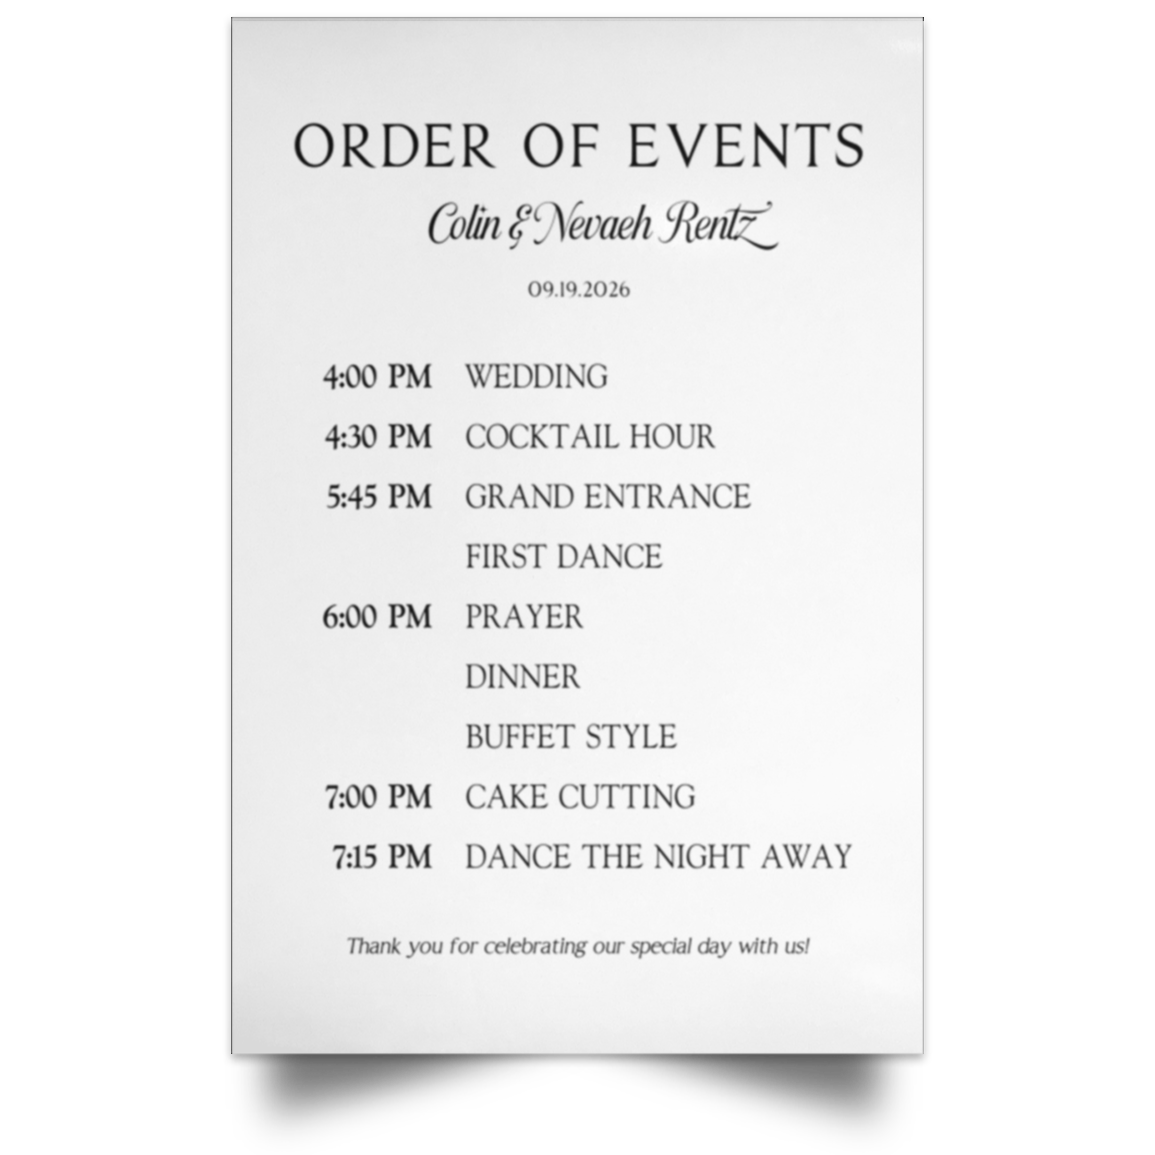 ORDER OF EVENTS
Colin & Nevaeh Rentz
09.19.2026
4:00 PM WEDDING
4:30 PM COCKTAIL HOUR
5:45 PM GRAND ENTRANCE
FIRST DANCE
6:00 PM PRAYER
DINNER
BUFFET STYLE
7:00 PM CAKE CUTTING
7:15 PM DANCE THE NIGHT AWAY
Thank you for celebrating our special day with us!